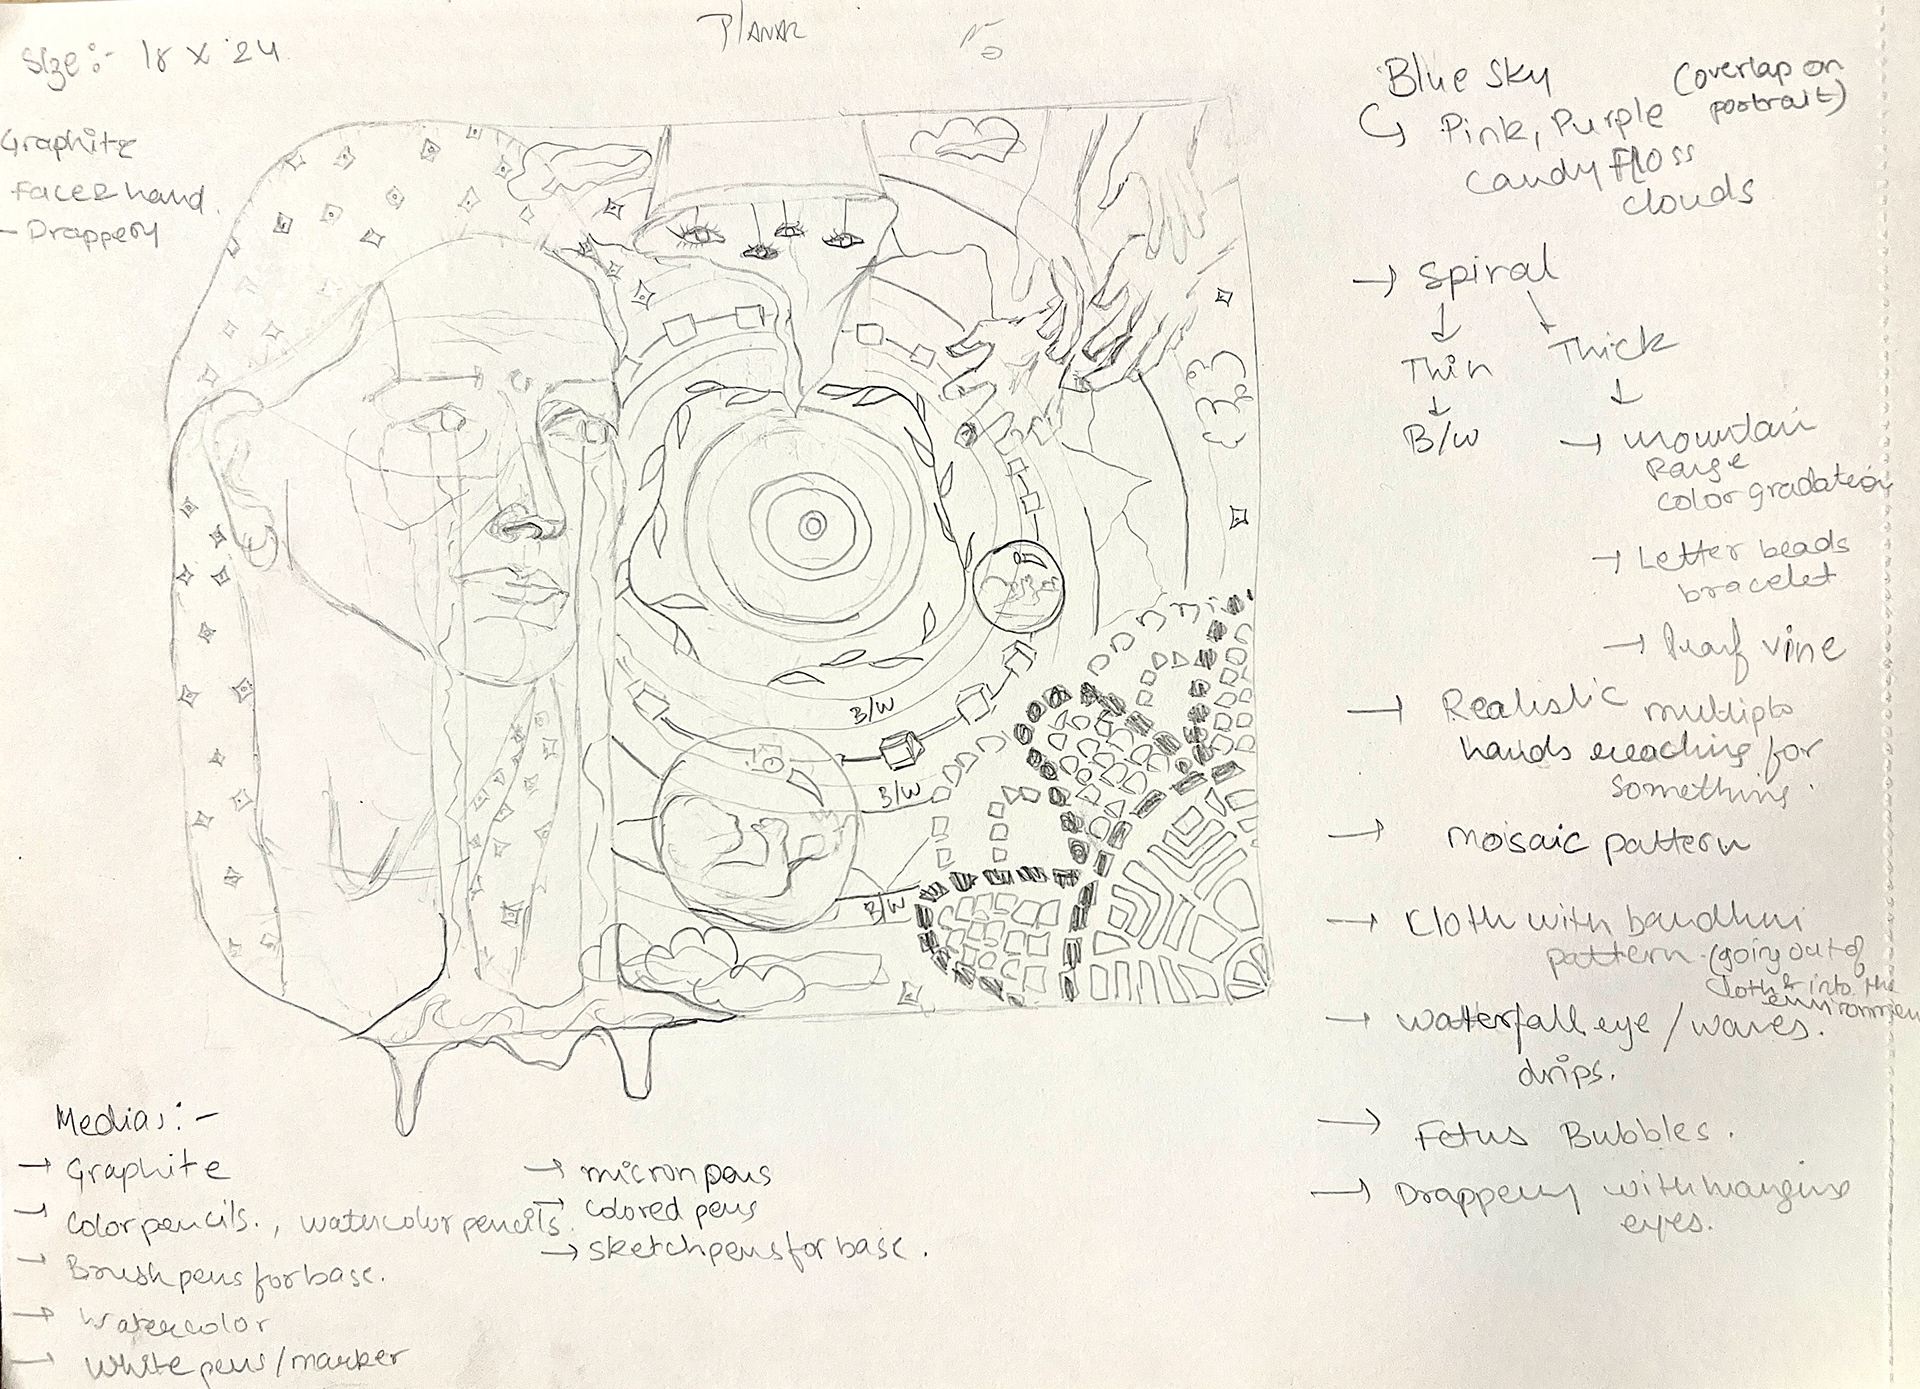 Planar
Size:- 18 x 24
Graphite
face & hand.
- Drappery
Blue Sky (overlap on
portrait)
Pink, Purple
Candy Floss
clouds
→ Spiral
Thin
Thick
B/W
→ mountain
Range
color gradation
→ Letter beads
bracelet
→ vine
→ Realistic multiple
hands reaching for
something.
→ Moisaic pattern
→ Cloth with bandhni
pattern. (going out of
cloth & into the
environment
→ waterfall eye / waves.
drips.
→ Fetus Bubbles.
→ Drappery with hanging
eyes.
B/W
B/W
B/W
Medias:-
→ Graphite
→ Color pencils., watercolor pencils.
→ Brush pens for base.
→ Watercolor
→ White pens / marker
→ micron pens
→ colored pens
→ sketchpens for base.